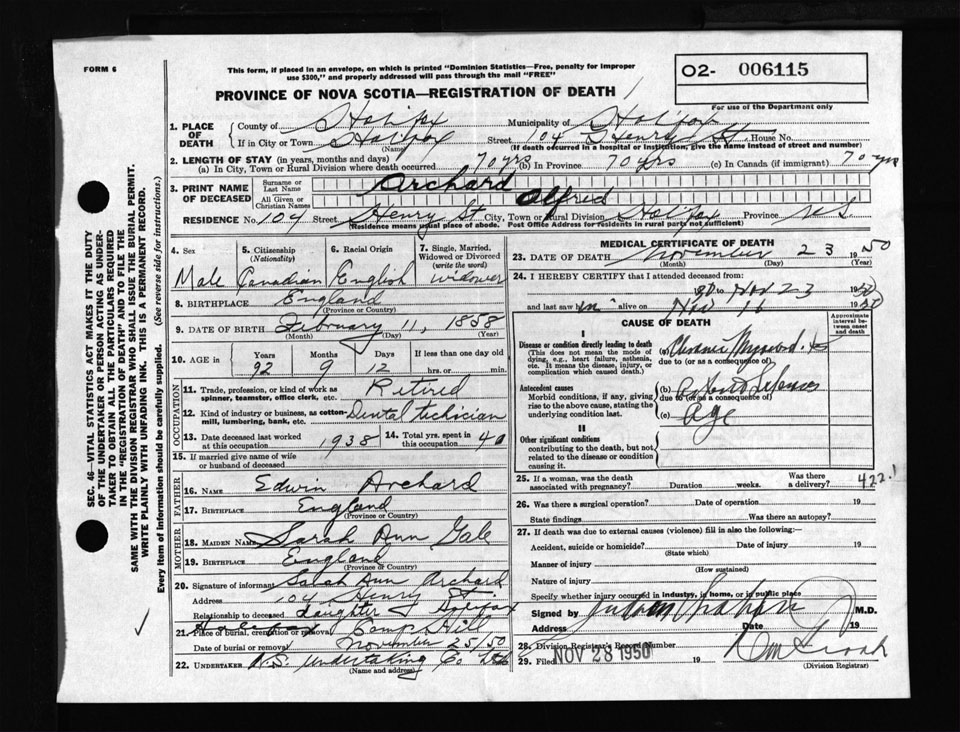 FORM 6
This form, if placed in an envelope, on which is printed "Dominion Statistics—Free, penalty for improper
use $300," and properly addressed will pass through the mail "FREE"
02- 006115
For use of the Department only
PROVINCE OF NOVA SCOTIA—REGISTRATION OF DEATH
1. PLACE OF DEATH
County of Halifax Municipality of Halifax
If in City or Town Halifax Street 104 Henry St House No.
(Name) (If death occurred in a hospital or institution, give the name instead of street and number)
2. LENGTH OF STAY (in years, months and days)
(a) In City, Town or Rural Division where death occurred 70 yrs (b) In Province 70 yrs (c) In Canada (if immigrant) 70 yrs
3. PRINT NAME OF DECEASED
Surname or Last Name Archard
All Given or Christian Names Alfred
RESIDENCE No. 104 Street Henry St City, Town or Rural Division Halifax Province NS
(Residence means usual place of abode. Post Office Address for residents in rural parts not sufficient)
4. Sex 5. Citizenship (Nationality) 6. Racial Origin 7. Single, Married, Widowed or Divorced (write the word)
Male Canadian English widower
8. BIRTHPLACE England
(Province or Country)
9. DATE OF BIRTH February 11, 1858
(Month) (Day) (Year)
10. AGE in Years Months Days If less than one day old
92 9 12 hrs. or min.
OCCUPATION
11. Trade, profession, or kind of work as spinner, teamster, office clerk, etc. Retired
12. Kind of industry or business, as cotton-mill, lumbering, bank, etc. Dental technician
13. Date deceased last worked at this occupation 1938 14. Total yrs. spent in this occupation 40
15. If married give name of wife or husband of deceased
FATHER
16. NAME Edwin Archard
17. BIRTHPLACE England
(Province or Country)
MOTHER
18. MAIDEN NAME Sarah Ann Gale
19. BIRTHPLACE England
(Province or Country)
20. Signature of informant Sarah Ann Archard
Address 104 Henry St.
Relationship to deceased daughter Halifax
21. Place of burial, cremation or removal Camp Hill
Date of burial or removal November 25/50
22. UNDERTAKER N.S. Undertaking Co Ltd
(Name and address)
MEDICAL CERTIFICATE OF DEATH
23. DATE OF DEATH November 23 1950
(Month) (Day) (Year)
24. I HEREBY CERTIFY that I attended deceased from:
to Nov 23 1950
and last saw him alive on Nov 16 1950
CAUSE OF DEATH
Approximate interval between onset and death
I
Disease or condition directly leading to death
(This does not mean the mode of dying, e.g., heart failure, asthenia, etc. It means the disease, injury, or complication which caused death.)
(a) Chronic
due to (or as a consequence of)
Antecedent causes
Morbid conditions, if any, giving rise to the above cause, stating the underlying condition last.
(b)
due to (or as a consequence of)
(c) Age
II
Other significant conditions
contributing to the death, but not related to the disease or condition causing it.
25. If a woman, was the death associated with pregnancy? Duration weeks. Was there a delivery? 422.1
26. Was there a surgical operation? Date of operation 19
State findings Was there an autopsy?
27. If death was due to external causes (violence) fill in also the following:—
Accident, suicide or homicide? Date of injury 19
(State which)
Manner of injury
(How sustained)
Nature of injury
Specify whether injury occurred in industry, in home, or in public place
Signed by M.D.
Address Date 19
28. Division Registrar's Record Number
29. Filed NOV 28 1950 19
(Division Registrar)
SEC. 46—VITAL STATISTICS ACT MAKES IT THE DUTY
OF THE UNDERTAKER OR PERSON ACTING AS UNDER-
TAKER TO OBTAIN ALL THE PARTICULARS REQUIRED
IN THE "REGISTRATION OF DEATH" AND TO FILE THE
SAME WITH THE DIVISION REGISTRAR WHO SHALL ISSUE THE BURIAL PERMIT.
WRITE PLAINLY WITH UNFADING INK. THIS IS A PERMANENT RECORD.
Every item of information should be carefully supplied. (See reverse side for instructions.)